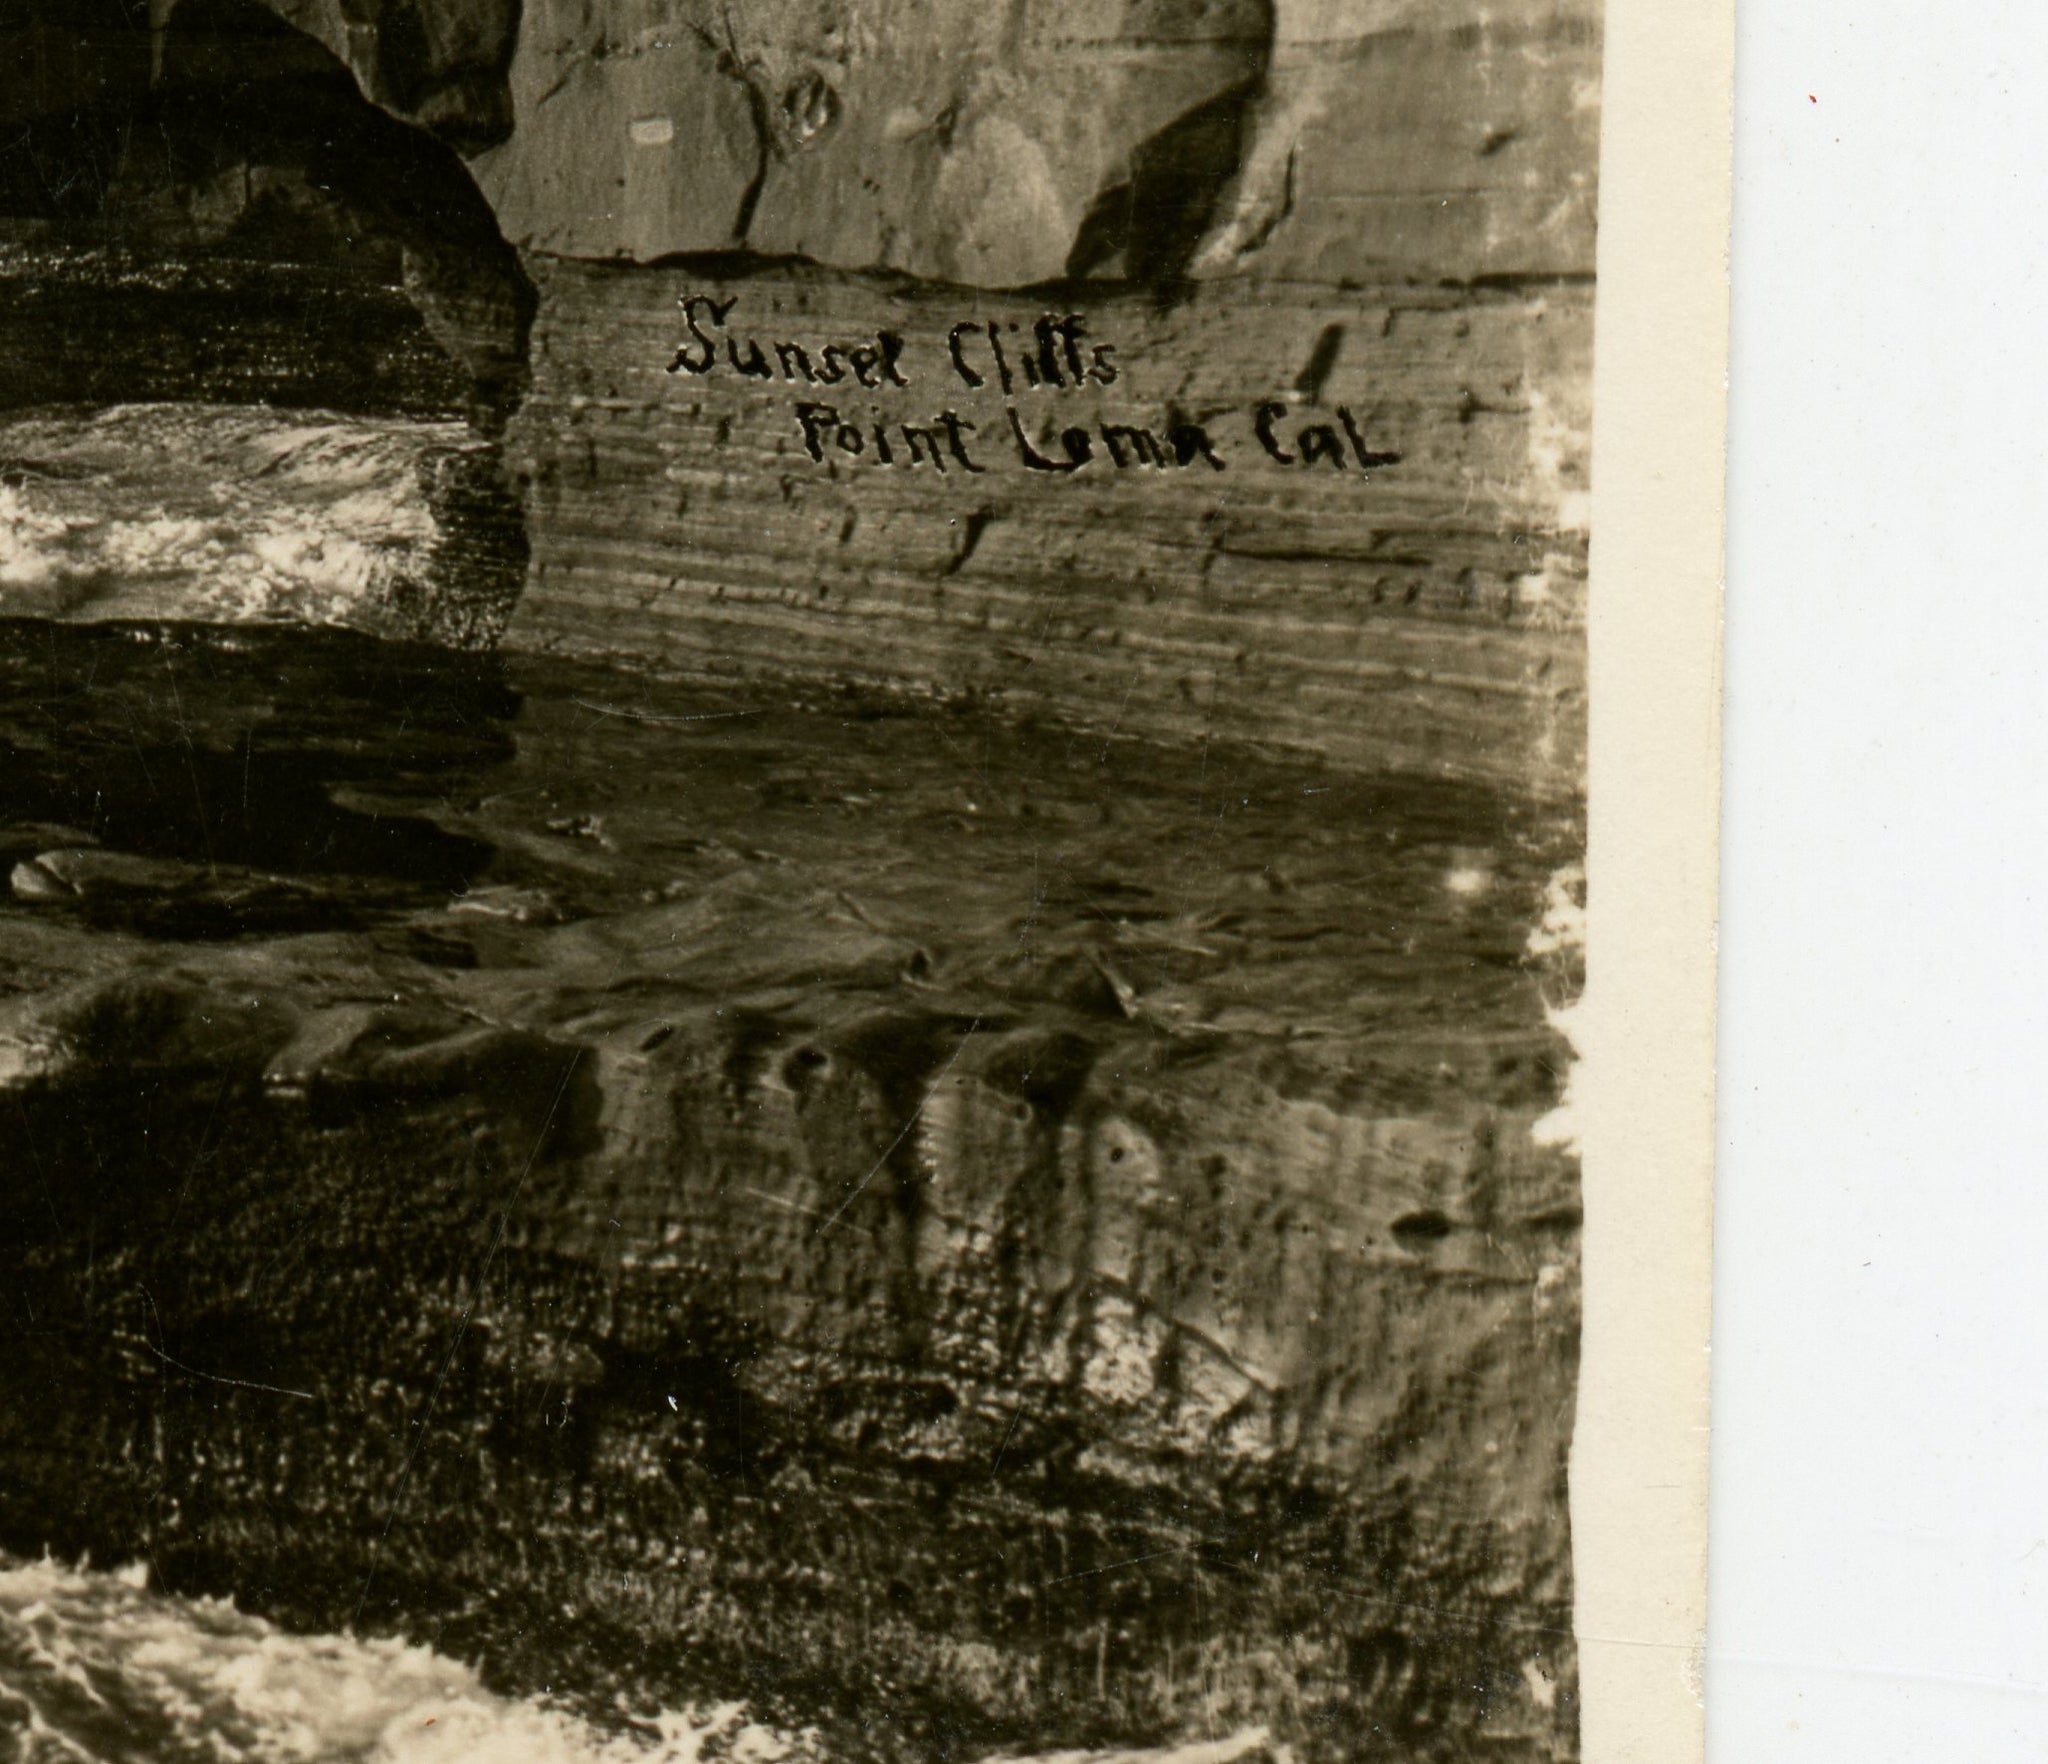 Sunset Cliffs
Point Loma Cal